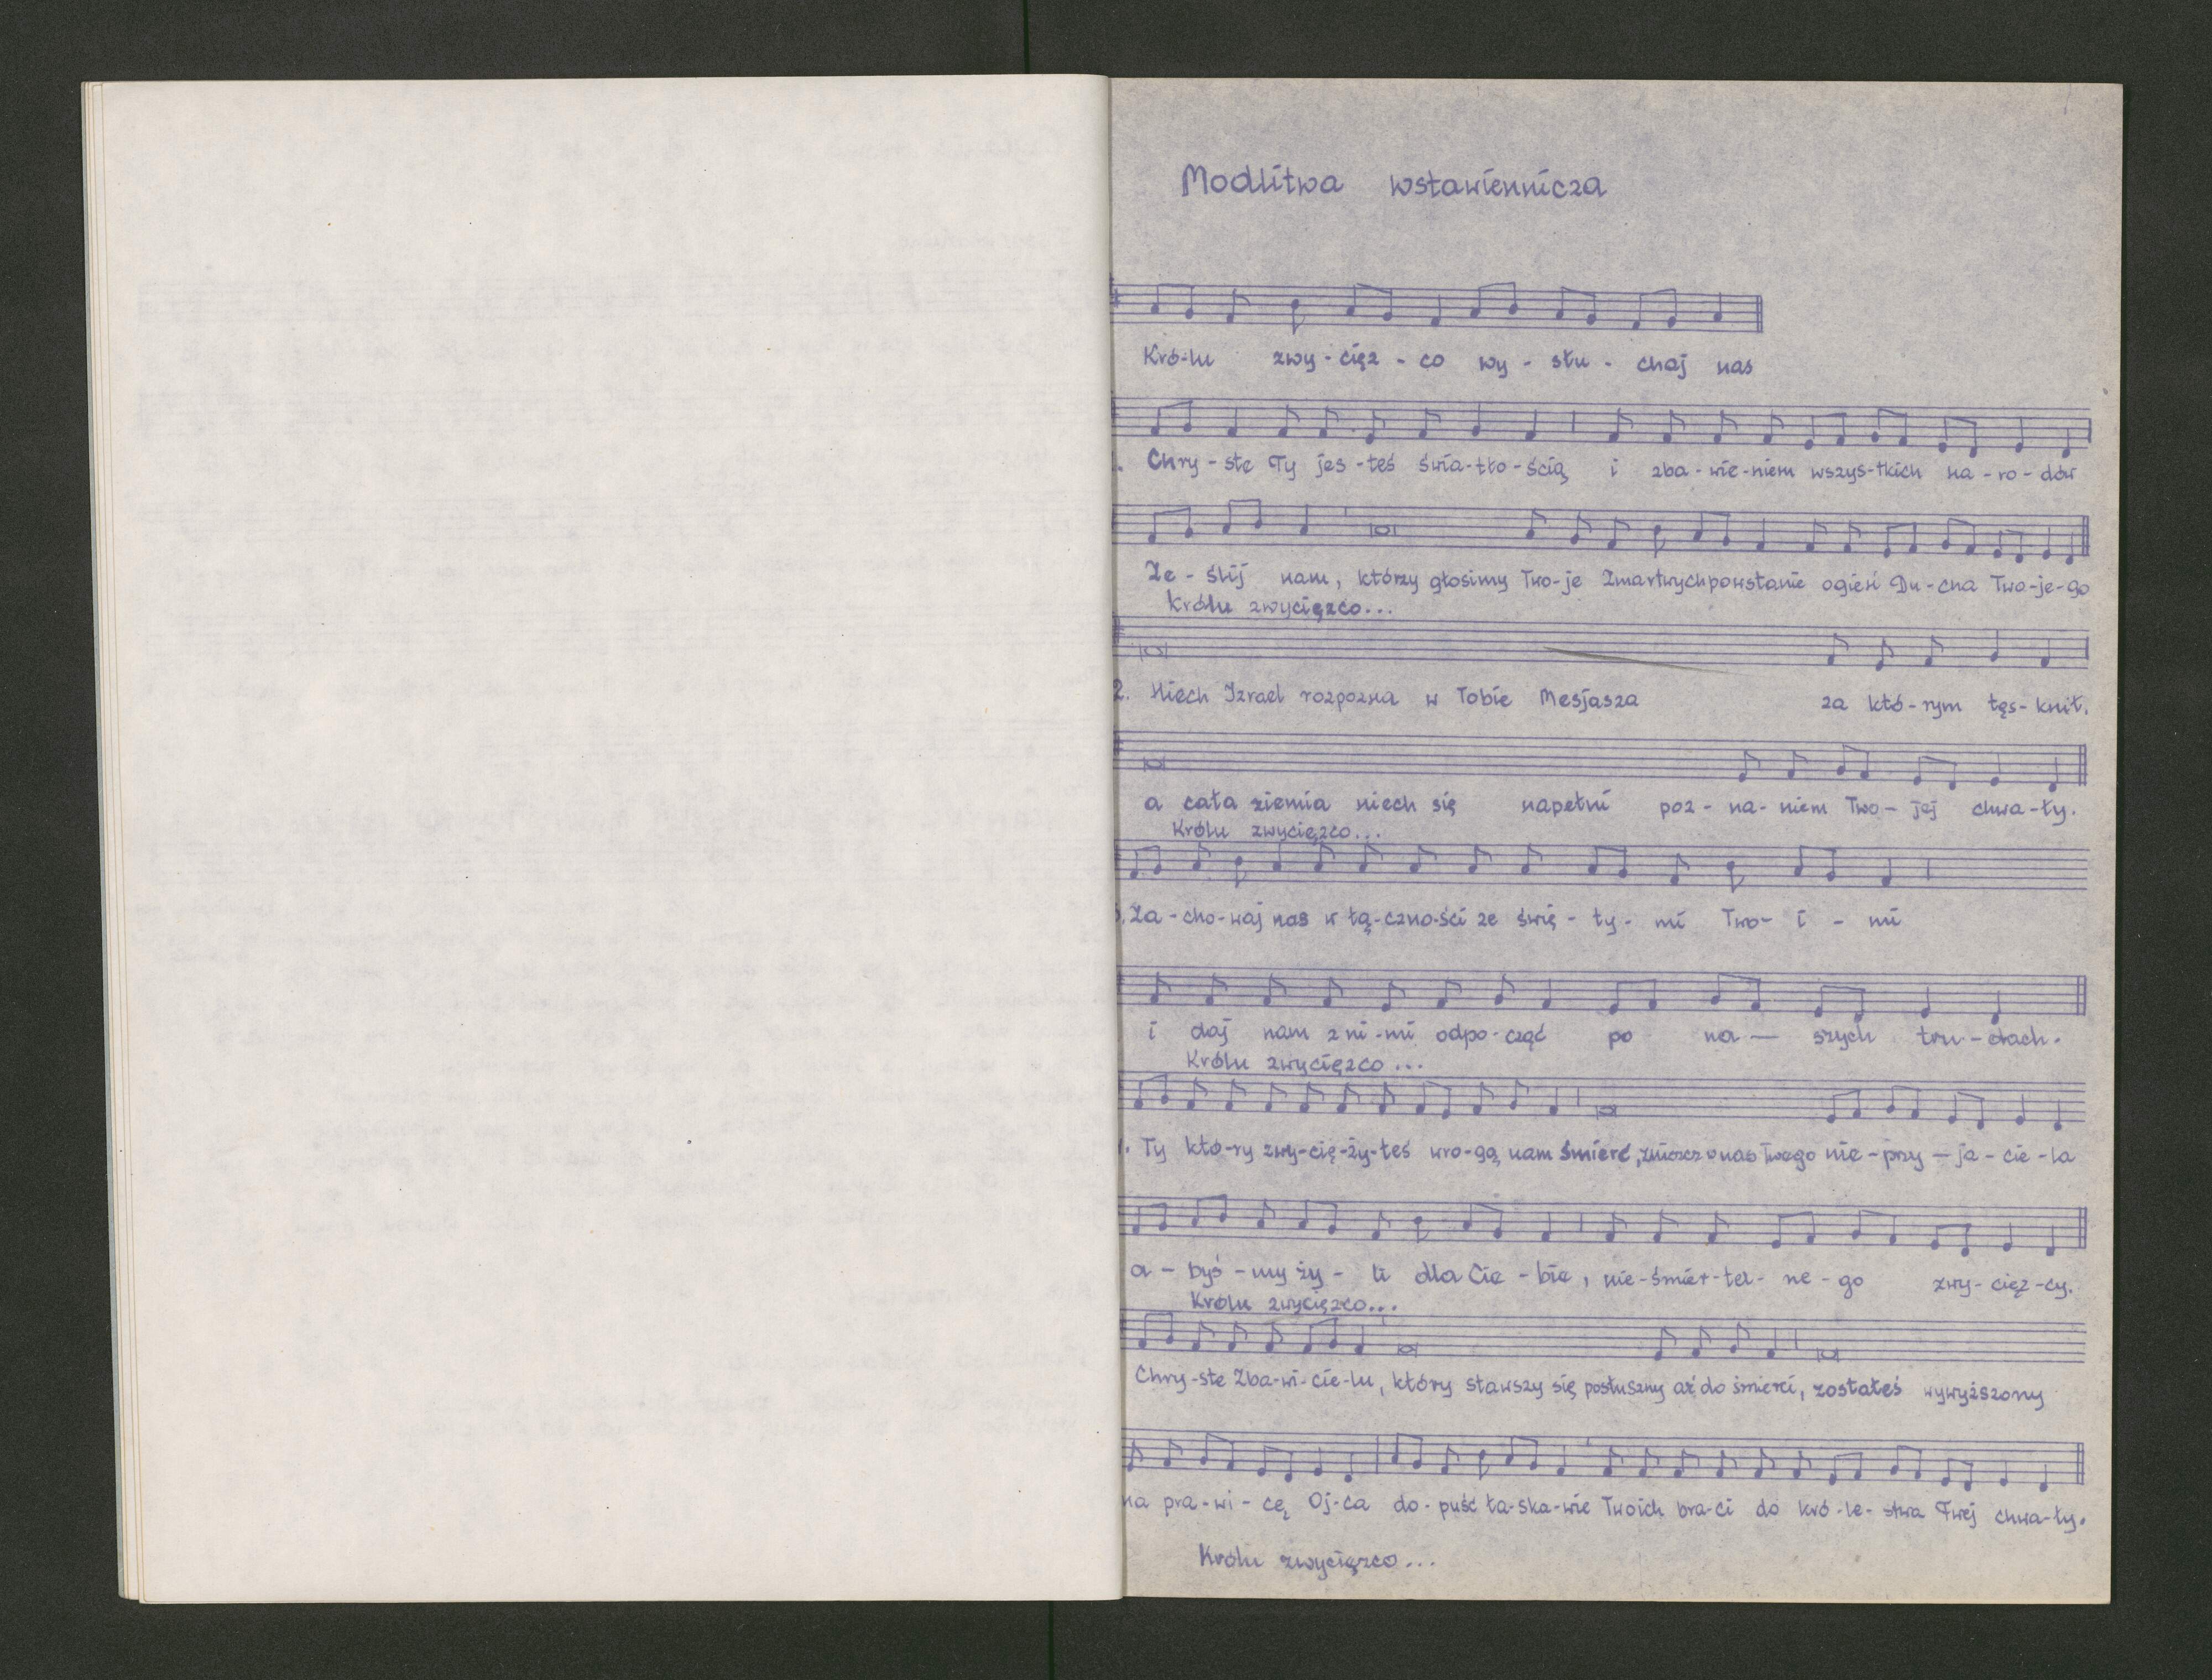 Modlitwa wstawiennicza
Kró-lu zwy-cięz-co wy-słu-chaj nas
1. Chry-ste Ty jes-teś świa-tło-ścią i zba-wie-niem wszys-tkich na-ro-dów
Ze-ślij nam, którzy głosimy Two-je Zmartwychpowstanie ogień Du-cha Two-je-go
Królu zwycięzco...
2. Niech Izrael rozpozna w Tobie Mesjasza za któ-rym tęs-knił.
a cała ziemia niech się napełni poz-na-niem Two-jej chwa-ły.
Królu zwycięzco...
3. Za-cho-waj nas w łą-czno-ści ze świę-ty-mi Two-i-mi
i daj nam z ni-mi odpo-cząć po na— szych tru-dach.
Królu zwycięzco...
4. Ty któ-ry zwy-cię-ży-łeś wro-gą nam śmierć, zniszcz w nas Twego nie-przy-ja-cie-la
a-byś-my ży-li dla Cie-bie, nie-śmier-tel-ne-go zwy-cięz-cy.
Królu zwycięzco...
Chry-ste Zba-wi-cie-lu, który stawszy się posłuszny aż do śmierci, zostałeś wywyższony
na pra-wi-cę Oj-ca do-puść ła-ska-wie Twoich bra-ci do kró-le-stwa Twej chwa-ły.
Królu zwycięzco...